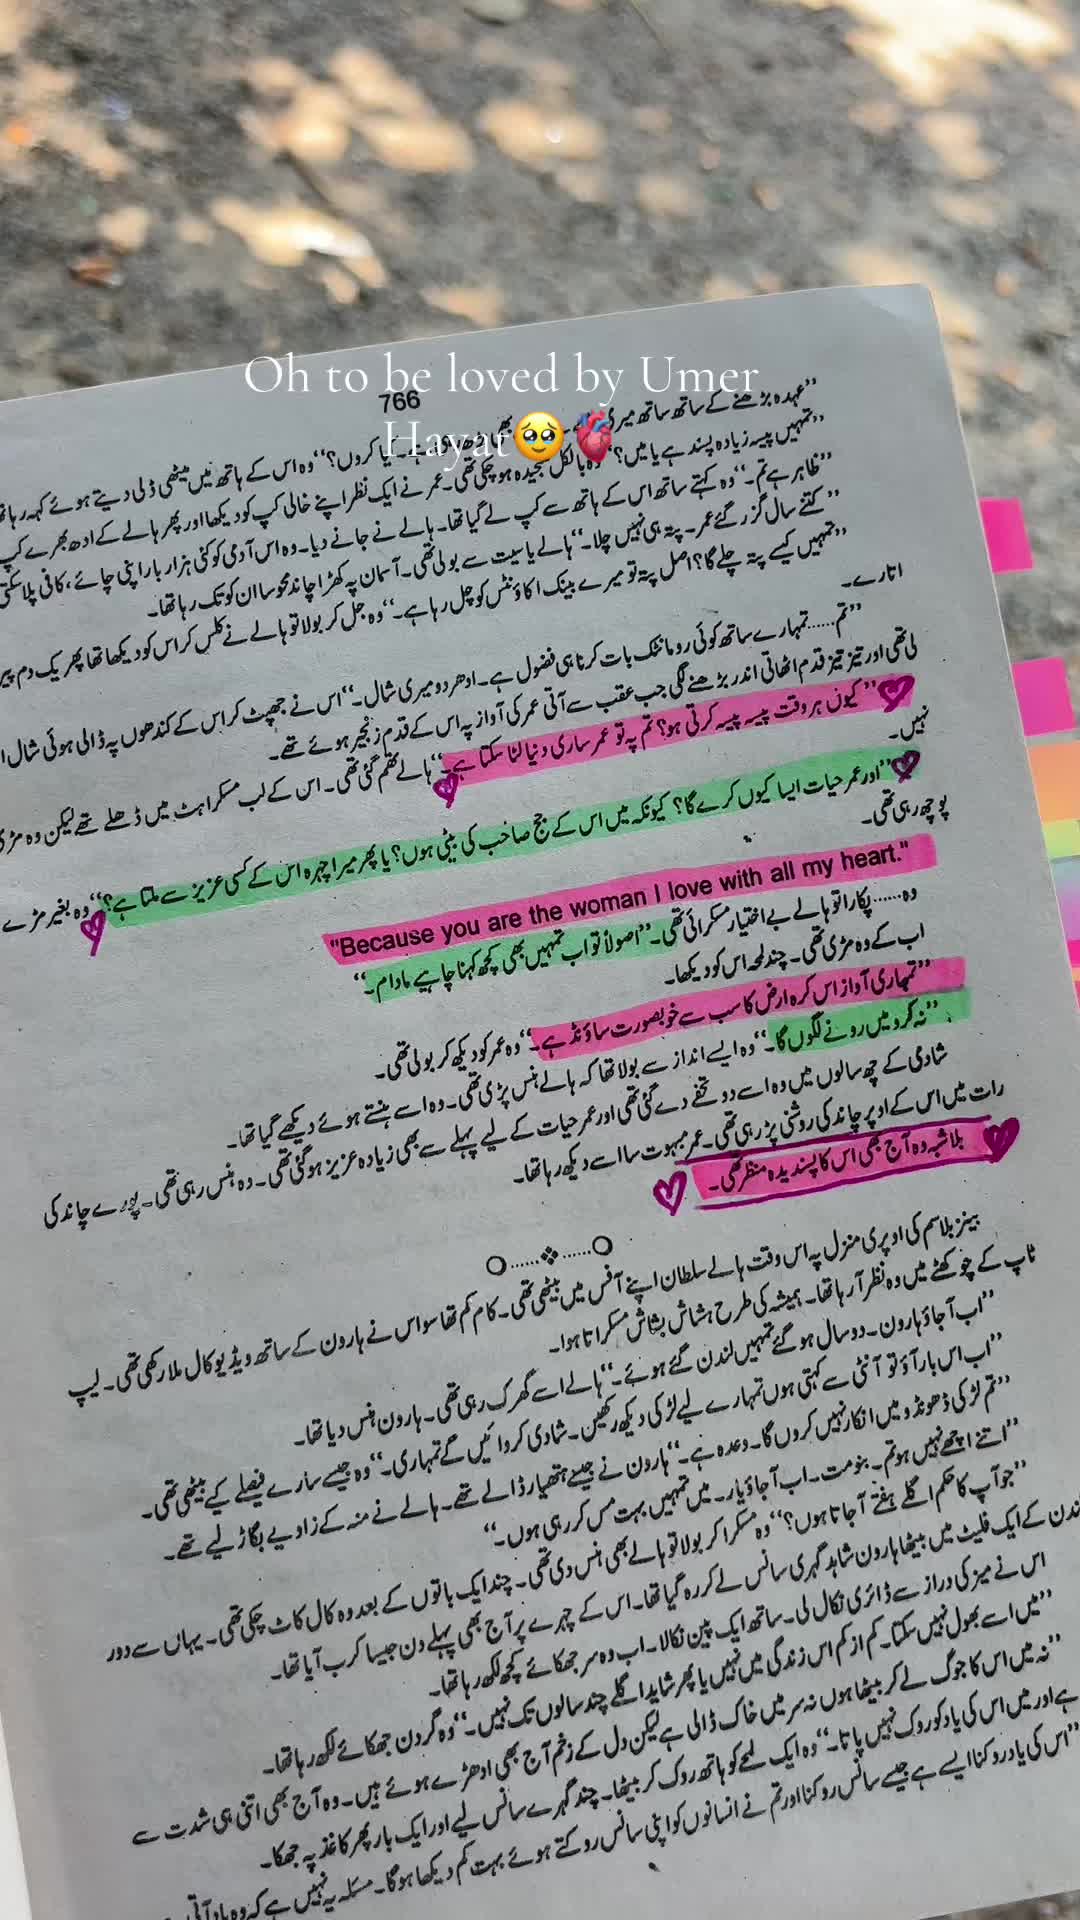 Oh to be loved by Umer
Hayat🥹🫀
766
"عہدہ بڑھنے کے ساتھ ساتھ میری
"تمہیں پیسہ زیادہ پسند ہے یا میں؟" وہ بالکل سنجیدہ ہو چکی تھی۔ عمر نے ایک نظر اپنے خالی کپ کو دیکھا اور پھر ہالے کے ادھ بھرے کپ
"ظاہر ہے تم۔" وہ کہتے ساتھ اس کے ہاتھ سے کپ لے گیا تھا۔ ہالے نے جانے دیا۔ وہ اس آدمی کو کئی ہزار بار اپنی چائے، کافی پلا سکتی
"کتنے سال گزر گئے عمر۔ پتہ ہی نہیں چلا۔" ہالے یاسیت سے بولی تھی۔ آسمان پہ کھڑا چاند محو سا ان کو تک رہا تھا۔
"تمہیں کیسے پتہ چلے گا؟ اصل پتہ تو میرے بینک اکاؤنٹس کو چل رہا ہے۔" وہ جل کر بولا تو ہالے نے کلس کر اس کو دیکھا تھا پھر یک دم پیر
اتارے۔
"تم...... تمہارے ساتھ کوئی رومانٹک بات کرنا ہی فضول ہے۔ ادھر دو میری شال۔" اس نے جھپٹ کر اس کے کندھوں پہ ڈالی ہوئی شال
لی تھی اور تیز تیز قدم اٹھاتی اندر بڑھنے لگی جب عقب سے آتی عمر کی آواز پہ اس کے قدم زنجیر ہوئے تھے۔
"کیوں ہر وقت پیسہ پیسہ کرتی ہو؟ تم پہ تو عمر ساری دنیا لٹا سکتا ہے۔" ہالے تھم گئی تھی۔ اس کے لب مسکراہٹ میں ڈھلے تھے لیکن وہ مڑی
نہیں۔
"اور عمر حیات ایسا کیوں کرے گا؟ کیونکہ میں اس کے جج صاحب کی بیٹی ہوں؟ یا پھر میرا چہرہ اس کے کسی عزیز سے ملتا ہے؟" وہ بغیر مڑے
پوچھ رہی تھی۔
"Because you are the woman I love with all my heart."
وہ...... پکارا تو ہالے بے اختیار مسکرائی تھی۔ "اصولاً تو اب تمہیں بھی کچھ کہنا چاہیے مادام۔"
اب کے وہ مڑی تھی۔ چند لمحہ اس کو دیکھا۔
"تمہاری آواز اس کرہ ارض کا سب سے خوبصورت ساؤنڈ ہے۔" وہ عمر کو دیکھ کر بولی تھی۔
"نہ کرو میں رونے لگوں گا۔" وہ ایسے انداز سے بولا تھا کہ ہالے ہنس پڑی تھی۔ وہ اسے ہنستے ہوئے دیکھے گیا تھا۔
شادی کے چھ سالوں میں وہ اسے دو تحفے دے گئی تھی اور عمر حیات کے لیے پہلے سے بھی زیادہ عزیز ہو گئی تھی۔ وہ ہنس رہی تھی۔ پورے چاند کی
رات میں اس کے اوپر چاند کی روشنی پڑ رہی تھی۔ عمر مبہوت سا اسے دیکھ رہا تھا۔
بلاشبہ وہ آج بھی اس کا پسندیدہ منظر تھی۔
بینز بلاسم کی اوپری منزل پہ اس وقت ہالے سلطان اپنے آفس میں بیٹھی تھی۔ کام کم تھا سو اس نے ہارون کے ساتھ ویڈیو کال ملا رکھی تھی۔ لیپ
ٹاپ کے چوکھٹے میں وہ نظر آ رہا تھا۔ ہمیشہ کی طرح ہشاش بشاش مسکراتا ہوا۔
"اب آ جاؤ ہارون۔ دو سال ہو گئے تمہیں لندن گئے ہوئے۔" ہالے اسے گھرک رہی تھی۔ ہارون ہنس دیا تھا۔
"اب اس بار آؤ تو آنٹی سے کہتی ہوں تمہارے لیے لڑکی دیکھ رکھیں۔ شادی کروائیں گے تمہاری۔" وہ جیسے سارے فیصلے کیے بیٹھی تھی۔
"تم لڑکی ڈھونڈو میں انکار نہیں کروں گا۔ وعدہ ہے۔" ہارون نے جیسے ہتھیار ڈالے تھے۔ ہالے نے منہ کے زاویے بگاڑ لیے تھے۔
"اتنے اچھے نہیں ہو تم۔ بنو مت۔ اب آ جاؤ یار۔ میں تمہیں بہت مس کر رہی ہوں۔"
"جو آپ کا حکم اگلے ہفتے آ جاتا ہوں؟" وہ مسکرا کر بولا تو ہالے بھی ہنس دی تھی۔ چند ایک باتوں کے بعد وہ کال کاٹ چکی تھی۔ یہاں سے دور
لندن کے ایک فلیٹ میں بیٹھا ہارون شاہد گہری سانس لے کر رہ گیا تھا۔ اس کے چہرے پر آج بھی پہلے دن جیسا کرب آیا تھا۔
اس نے میز کی دراز سے ڈائری نکال لی۔ ساتھ ایک پین نکالا۔ اب وہ سر جھکائے کچھ لکھ رہا تھا۔
"میں اسے بھول نہیں سکتا۔ کم از کم اس زندگی میں نہیں یا پھر شاید اگلے چند سالوں تک نہیں۔" وہ گردن جھکائے لکھ رہا تھا۔
"نہ میں اس کا جوگ لے کر بیٹھا ہوں نہ سر میں خاک ڈالی ہے لیکن دل کے زخم آج بھی ادھڑے ہوئے ہیں۔ وہ آج بھی اتنی ہی شدت سے
ہے اور میں اس کی یاد کو روک نہیں پاتا۔" وہ ایک لمحے کو ہاتھ روک کر بیٹھا۔ چند گہرے سانس لیے اور ایک بار پھر کاغذ پہ جھکا۔
"اس کی یاد روکنا ایسے ہے جیسے سانس روکنا اور تم نے انسانوں کو اپنی سانس روکتے ہوئے بہت کم دیکھا ہوگا۔ مسئلہ یہ نہیں ہے کہ وہ یاد آتی